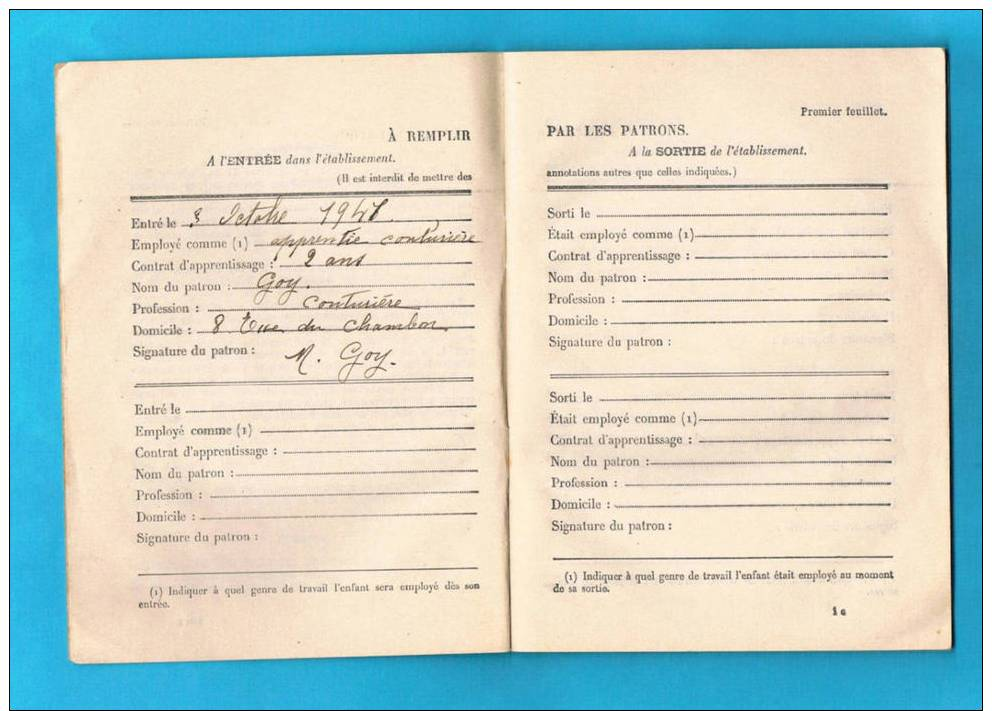 À REMPLIR
A l'ENTRÉE dans l'établissement.
(Il est interdit de mettre des
Entré le 3 Octobre 194
Employé comme (1) apprentie couturière
Contrat d'apprentissage : 2 ans
Nom du patron : Goy.
Profession : couturière
Domicile : 8 Rue du Chambon
Signature du patron : M. Goy.
Entré le
Employé comme (1)
Contrat d'apprentissage :
Nom du patron :
Profession :
Domicile :
Signature du patron :
(1) Indiquer à quel genre de travail l'enfant sera employé dès son
entrée.
Premier feuillet.
PAR LES PATRONS.
A la SORTIE de l'établissement.
annotations autres que celles indiquées.)
Sorti le
Était employé comme (1)
Contrat d'apprentissage :
Nom du patron :
Profession :
Domicile :
Signature du patron :
Sorti le
Était employé comme (1)
Contrat d'apprentissage :
Nom du patron :
Profession :
Domicile :
Signature du patron :
(1) Indiquer à quel genre de travail l'enfant était employé au moment
de sa sortie.